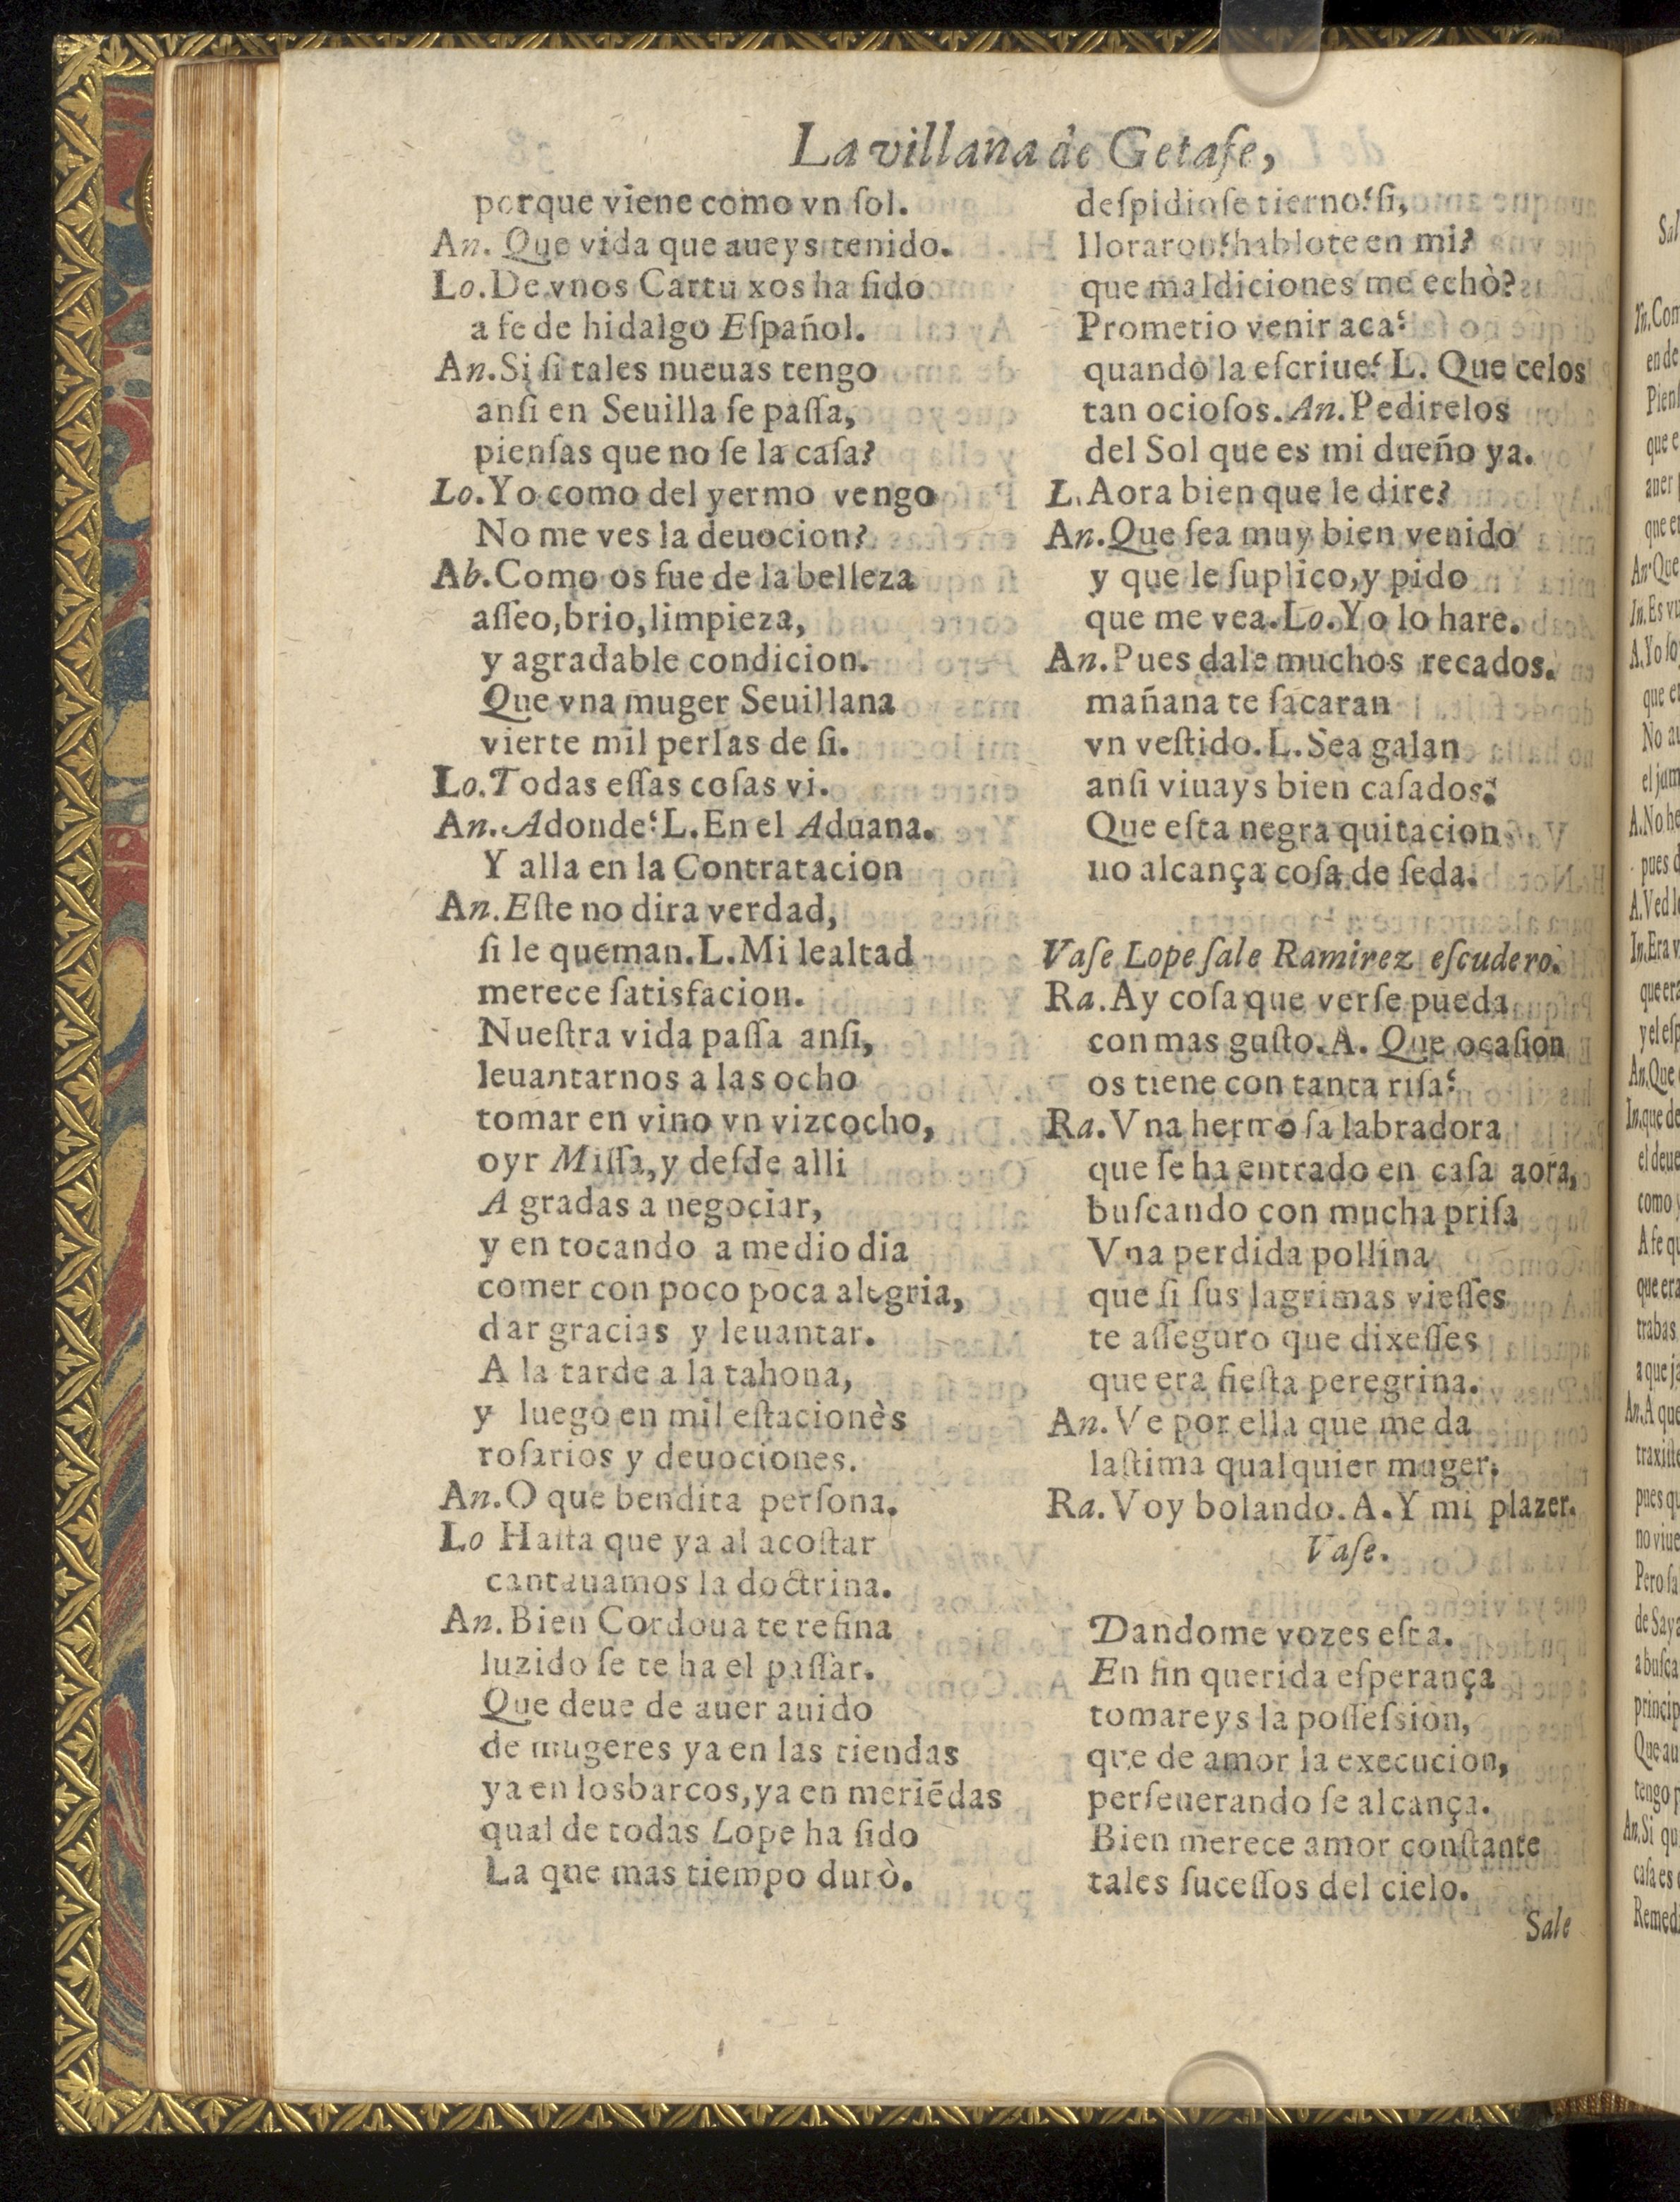 La villana de Getafe,
porque viene como vn ſol.
An. Que vida que aueys tenido.
Lo. De vnos Cartu xos ha ſido
a fe de hidalgo Eſpañol.
An. Si ſi tales nueuas tengo
anſi en Seuilla ſe paſſa,
pienſas que no ſe la caſa?
Lo. Yo como del yermo vengo
No me ves la deuocion?
Ab. Como os fue de la belleza
aſſeo, brio, limpieza,
y agradable condicion.
Que vna muger Seuillana
vierte mil perlas de ſi.
Lo. Todas eſſas coſas vi.
An. Adonde? L. En el Aduana.
Y alla en la Contratacion
An. Eſte no dira verdad,
ſi le queman. L. Mi lealtad
merece ſatisfacion.
Nueſtra vida paſſa anſi,
leuantarnos a las ocho
tomar en vino vn vizcocho,
oyr Miſſa, y deſde alli
A gradas a negociar,
y en tocando a medio dia
comer con poco poca alegria,
dar gracias y leuantar.
A la tarde a la tahona,
y luego en mil eſtacionès
roſarios y deuociones.
An. O que bendita perſona.
Lo Haſta que ya al acoſtar
cantauamos la doctrina.
An. Bien Cordoua te refina
luzido ſe te ha el paſſar.
Que deue de auer auido
de mugeres ya en las tiendas
ya en losbarcos, ya en meriēdas
qual de todas Lope ha ſido
La que mas tiempo durò.
deſpidioſe tierno? ſi,
lloraron? hablote en mi?
que maldiciones me echò?
Prometio venir aca?
quando la eſcriue? L. Que celos
tan ocioſos. An. Pedirelos
del Sol que es mi dueño ya.
L. Aora bien que le dire?
An. Que ſea muy bien venido
y que le ſuplico, y pido
que me vea. Lo. Yo lo hare.
An. Pues dale muchos recados.
mañana te ſacaran
vn veſtido. L. Sea galan
anſi viuays bien caſados:
Que eſta negra quitacion
no alcança coſa de ſeda.
Vaſe Lope ſale Ramirez eſcudero.
Ra. Ay coſa que verſe pueda
con mas guſto. A. Que ocaſion
os tiene con tanta riſa?
Ra. Vna hermo ſa labradora
que ſe ha entrado en caſa aora,
buſcando con mucha priſa
Vna perdida pollina
que ſi ſus lagrimas vieſſes
te aſſeguro que dixeſſes
que era fieſta peregrina.
An. Ve por ella que me da
laſtima qualquier muger.
Ra. Voy bolando. A. Y mi plazer.
Vaſe.
Dandome vozes eſta.
En fin querida eſperança
tomareys la poſſeſsion,
que de amor la execucion,
perſeuerando ſe alcança.
Bien merece amor conſtante
tales ſuceſſos del cielo.
Sale